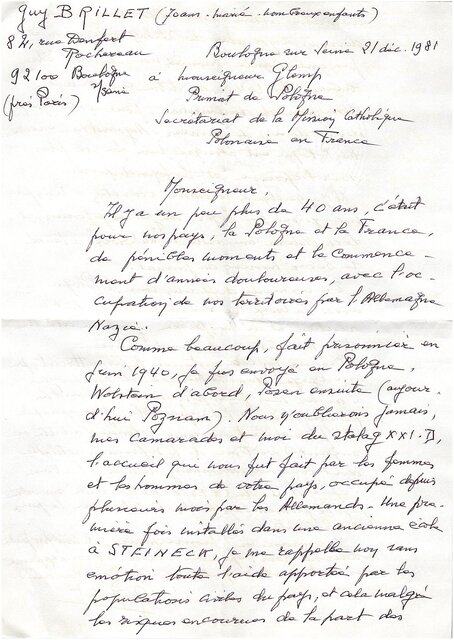 Guy BRILLET (70 ans - marié - nombreux enfants)
84, rue Denfert
Rochereau
92100 Boulogne
s/Seine
(près Paris)
Boulogne sur Seine 21 déc. 1981
à Monseigneur Glemp
Primat de Pologne
Secrétariat de la Mission Catholique
Polonaise en France
Monseigneur,
Il y a un peu plus de 40 ans, c'était
pour nos pays, la Pologne et la France,
de pénibles moments et le commence-
ment d'années douloureuses, avec l'oc-
cupation de nos territoires par l'Allemagne
Nazie.
Comme beaucoup, fait prisonnier en
Juin 1940, je fus envoyé en Pologne,
Wolstein d'abord, Posen ensuite (aujour-
d'hui Poznam). Nous n'oublierons jamais,
mes camarades et moi du stalag XXI.D,
l'accueil que nous fut fait par les femmes
et les hommes de votre pays, occupé depuis
plusieurs mois par les Allemands. Une pre-
mière fois installés dans une ancienne école
à STEINECK, je me rappelle non sans
émotion toute l'aide apportée par les
populations civiles du pays, et cela malgré
les risques encourus de la part des